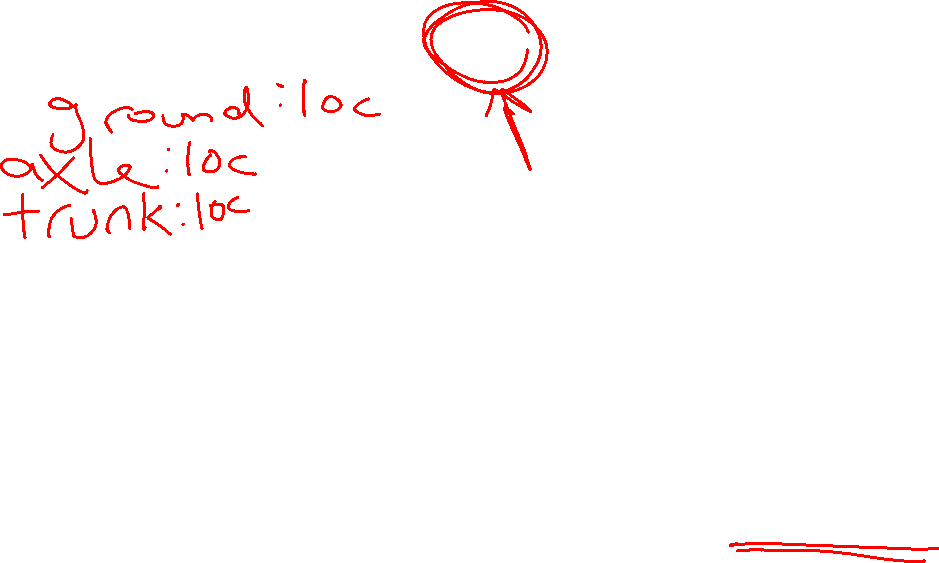 ground:loc
axle:loc
trunk:loc